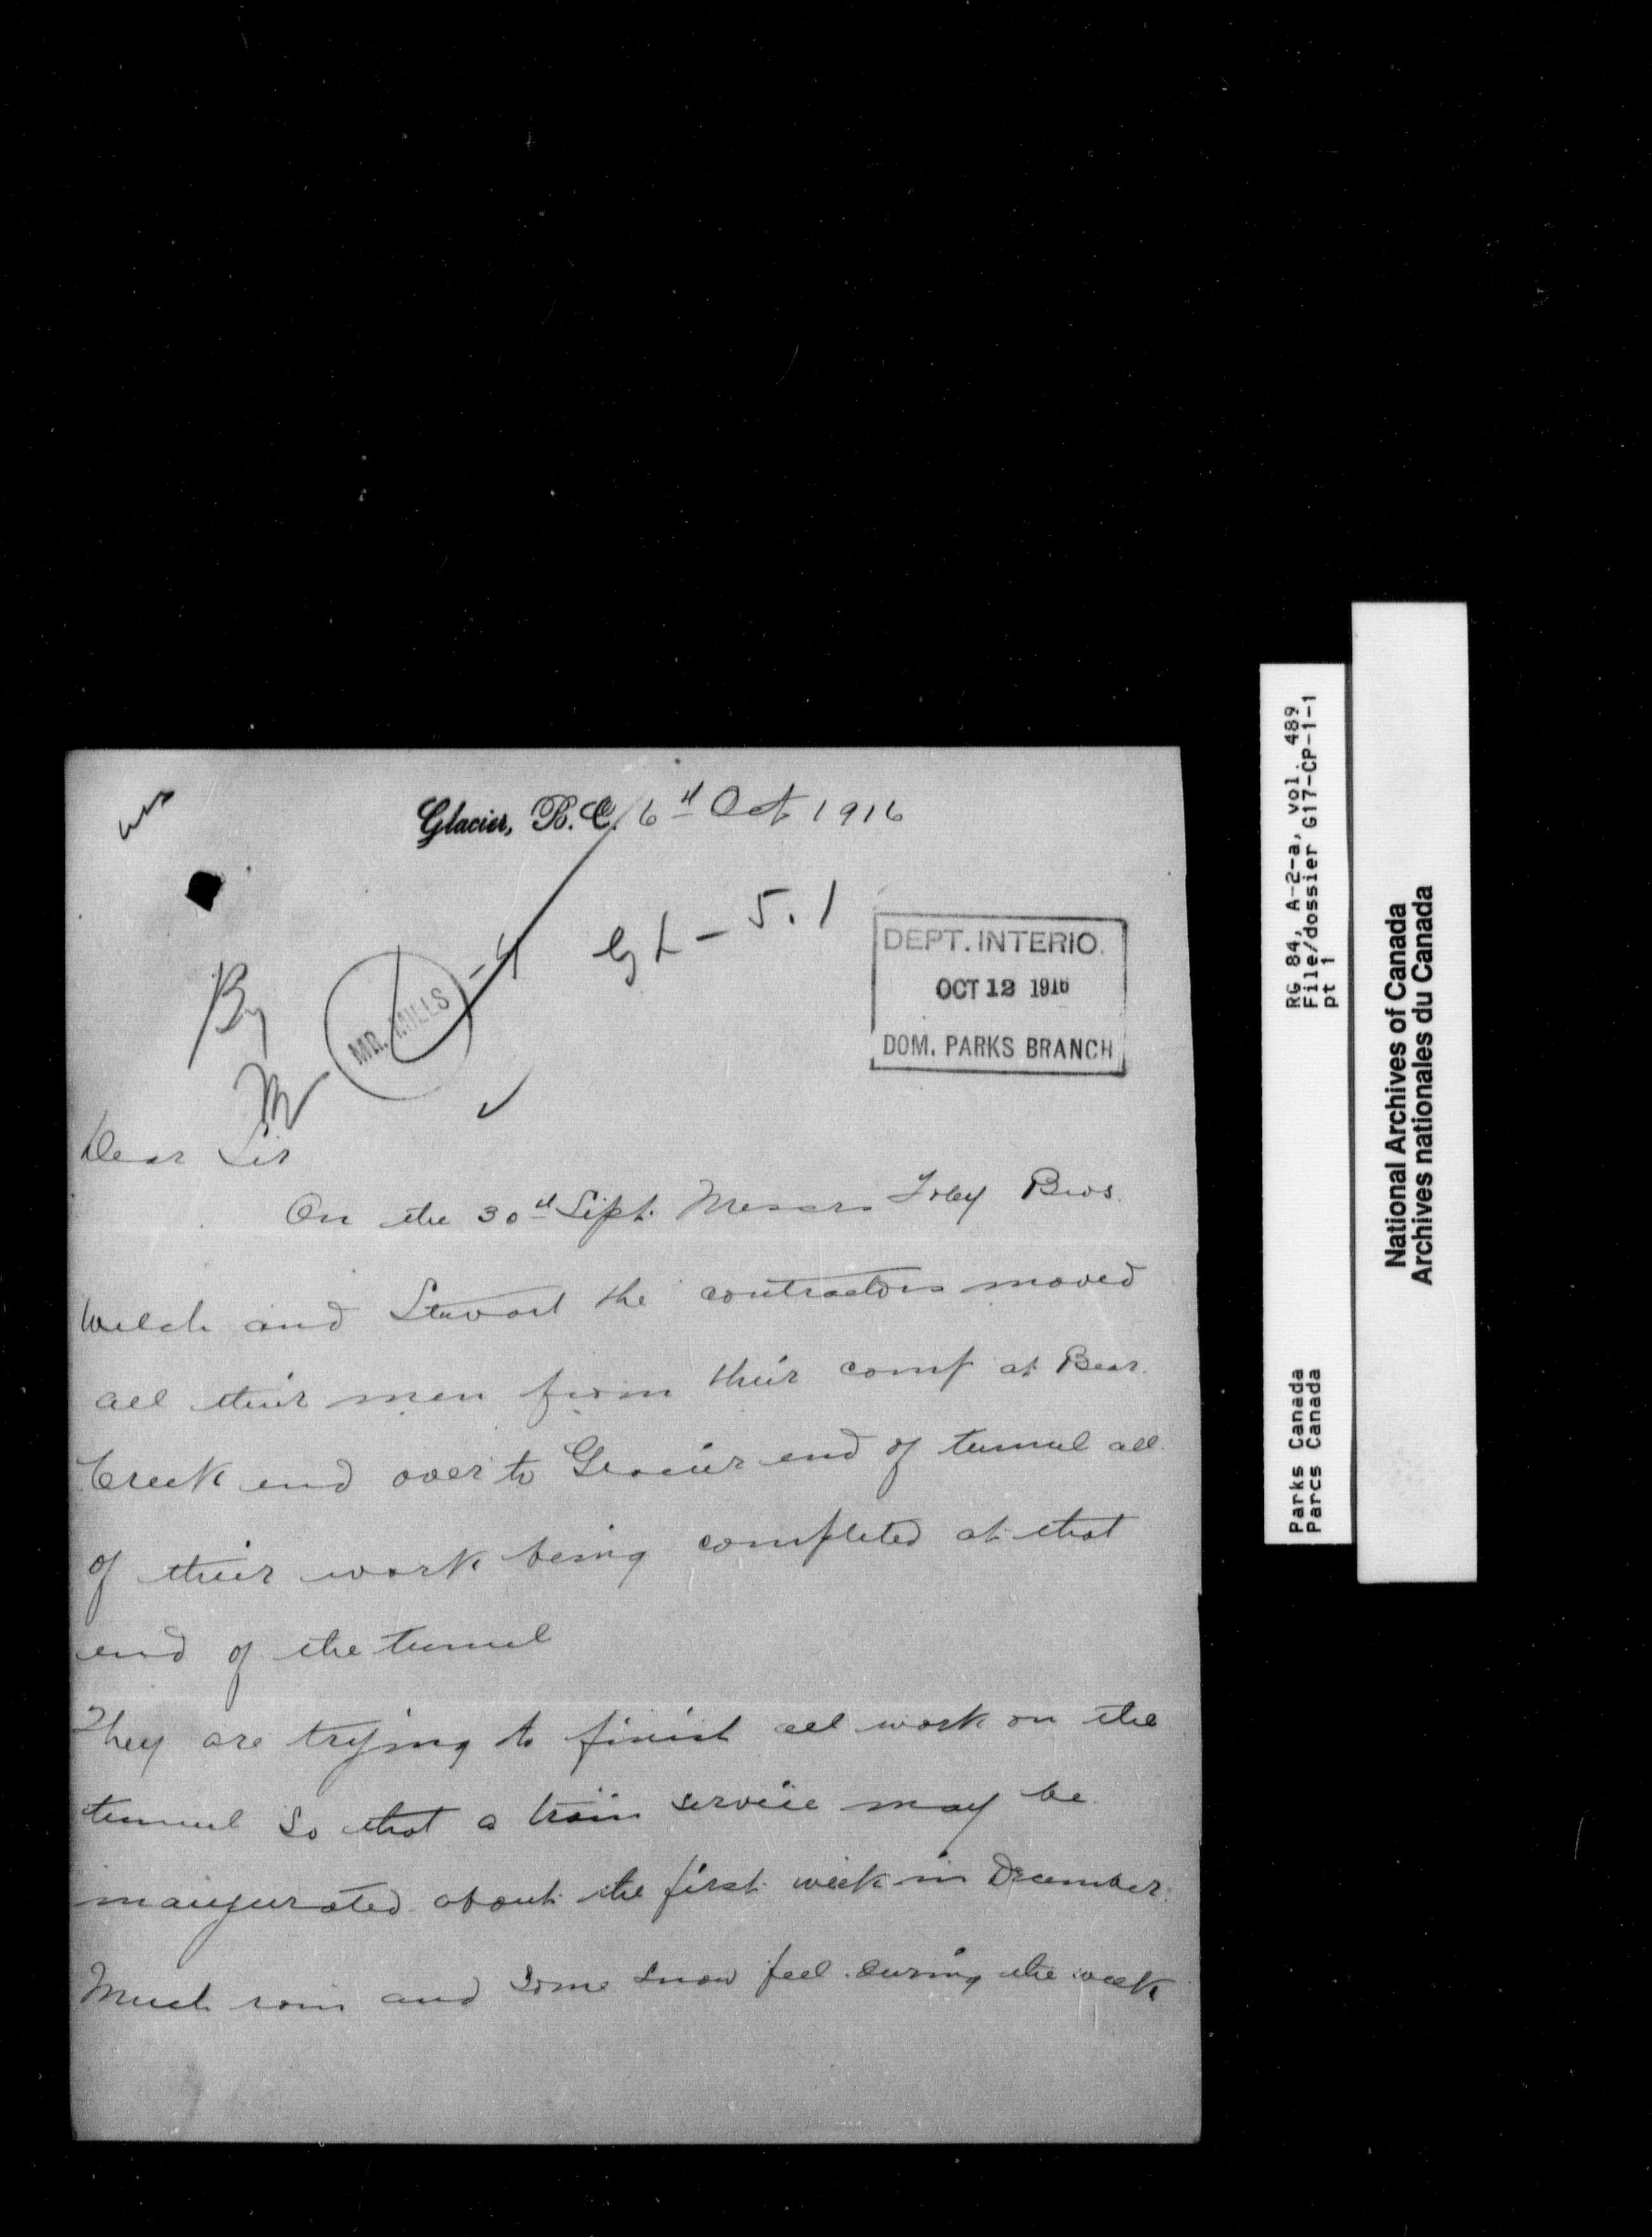 Glacier, B.C. 6th Oct 1916
GL - 5.1
DEPT. INTERIO.
OCT 12 1916
DOM. PARKS BRANCH
By
MR. MILLS
Dear Sir
On the 30th Sept. Messrs Foley Bros.
Welch and Stewart the contractors moved
all their men from their camp at Bear
Creek end over to Glacier end of tunnel all
of their work being completed at that
end of the tunnel
They are trying to finish all work on the
tunnel So that a train service may be
inaugurated about the first week in December.
Much rain and Some Snow feel during the week
Parks Canada
Parcs Canada
RG 84, A-2-a, vol. 489
File/dossier G17-CP-1-1
pt 1
National Archives of Canada
Archives nationales du Canada